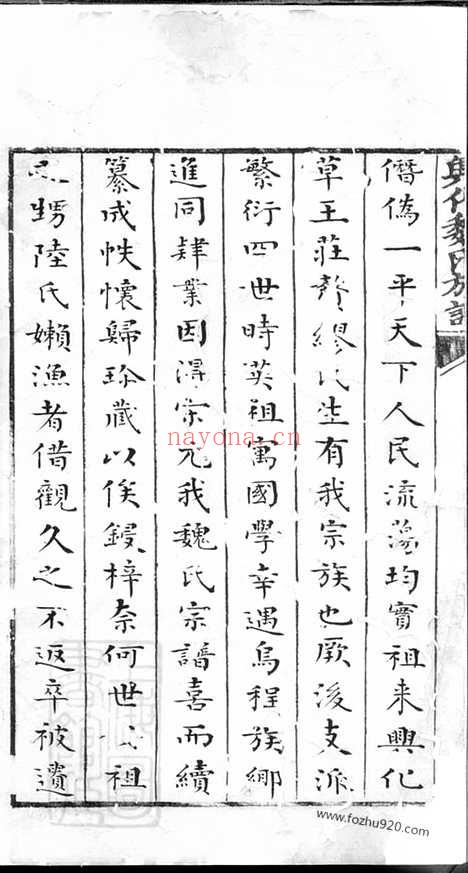 興化魏氏族譜
僭偽一平天下人民流蕩均實祖来興化
草王莊贅繆氏生有我宗族也厥後支派
繁衍四世時英祖寓國學幸遇烏程族鄉
進同肄業因得宋元我魏氏宗譜喜而續
纂成帙懷歸珍藏以俟鋟梓奈何世祖
甥陸氏嬾漁者借觀久之不返卒被遺
nayona.cn
www.fozhu920.com